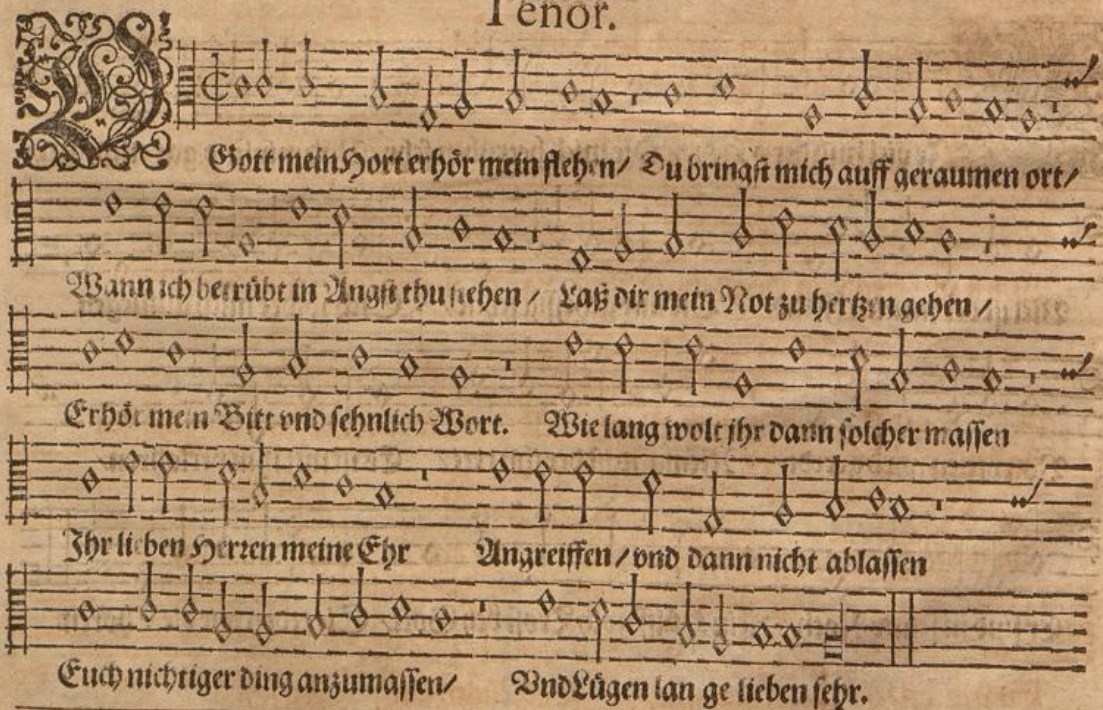 Tenor.
O Gott mein Hort erhör mein flehen/ Du bringst mich auff geraumen ort/
Wann ich betrübt in Angst thu stehen/ Laß dir mein Not zu hertzen gehen/
Erhör mein Bitt vnd sehnlich Wort. Wie lang wolt jhr dann solcher massen
Ihr lieben Herren meine Ehr Angreiffen/ vnd dann nicht ablassen
Euch nichtiger ding anzumassen/ Vnd Lügen lan ge lieben sehr.